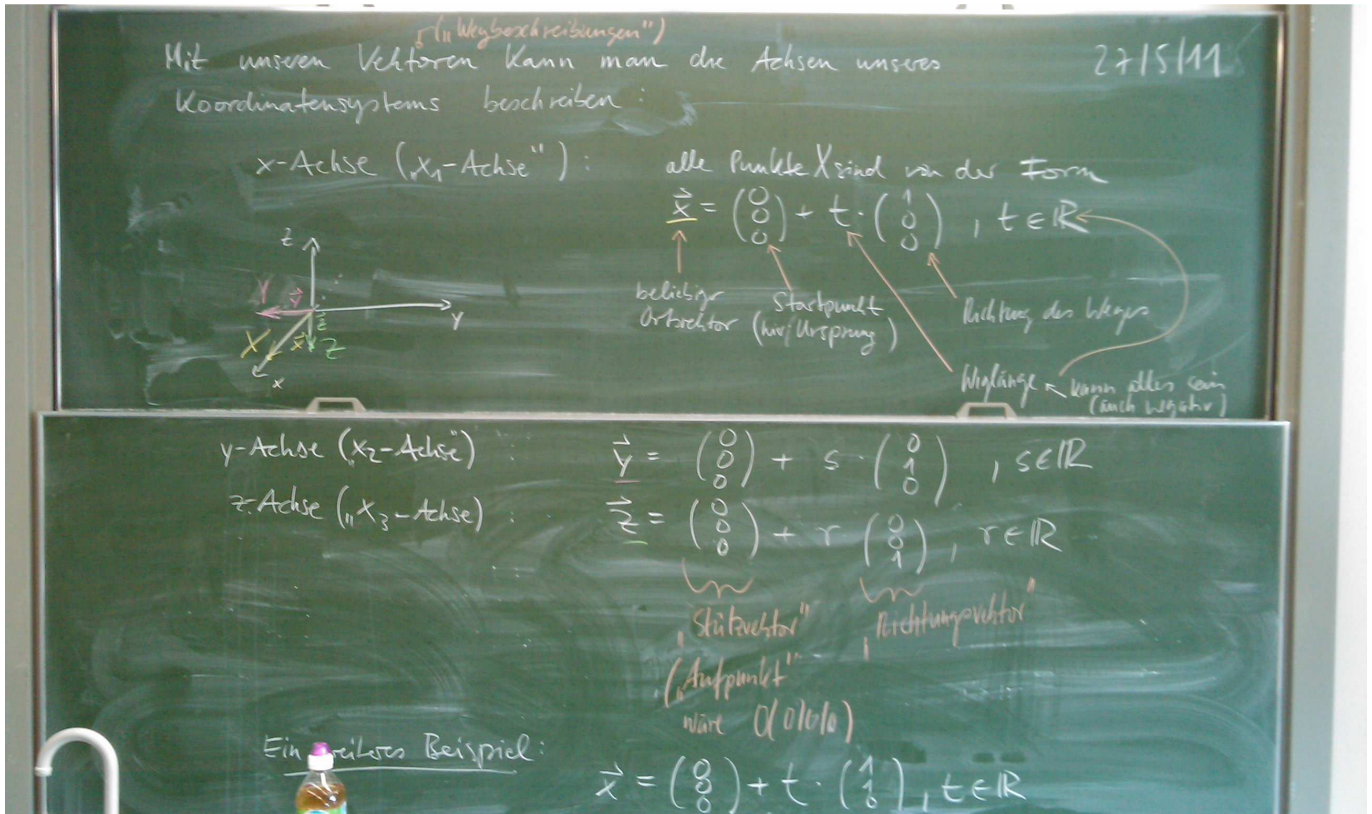 („Wegbeschreibungen")
Mit unseren Vektoren kann man die Achsen unseres
Koordinatensystems beschreiben:
27/5/11
x-Achse („x₁-Achse"):
alle Punkte X sind von der Form
x⃗ = (0 0 0) + t · (1 0 0), t ∈ ℝ
z
y
x
Y y⃗
X x⃗
z⃗ Z
beliebiger
Ortsvektor
Startpunkt
(hier/Ursprung)
Richtung des Weges
Weglänge
kann alles sein
(auch negativ)
y-Achse („x₂-Achse"):
y⃗ = (0 0 0) + s · (0 1 0), s ∈ ℝ
z-Achse („x₃-Achse):
z⃗ = (0 0 0) + r (0 0 1), r ∈ ℝ
„Stützvektor"
„Richtungsvektor"
(„Aufpunkt"
wäre O(0|0|0)
Ein weiteres Beispiel:
x⃗ = (0 0 0) + t · (1 1 0), t ∈ ℝ